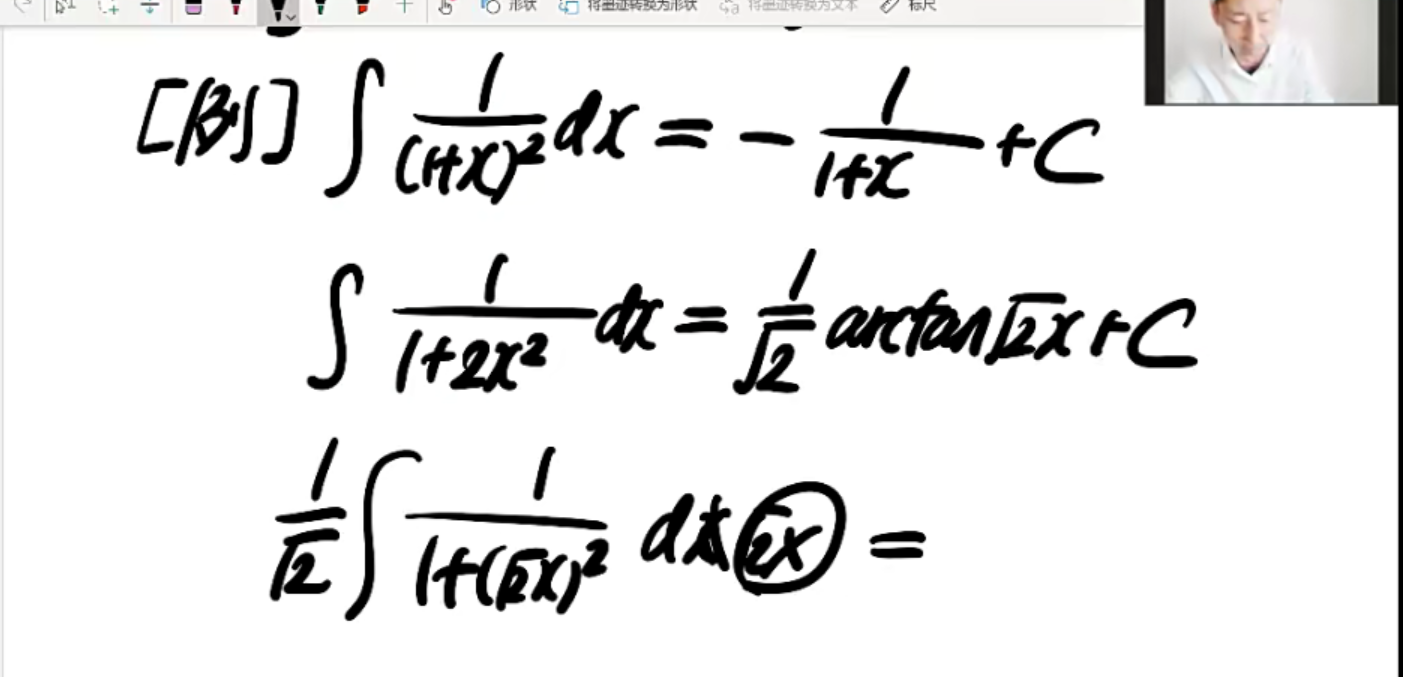 形状 将墨迹转换为形状 将墨迹转换为文本 标尺
[例] ∫ 1/(1+x)² dx = - 1/(1+x) + C
∫ 1/(1+2x²) dx = 1/√2 arctan√2x + C
1/√2 ∫ 1/(1+(√2x)²) d √2x =